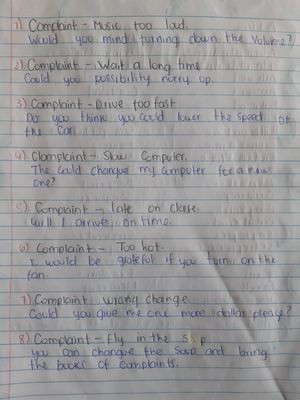 1) Complaint - Music too loud.
Would you mind turning down the volume?
2) Complaint - Wait a long time
Could you possibility hurry up.
3) Complaint - Drive too fast
Do you think you could lower the speed of
the car.
4) Clomplaint - Slow Computer.
The could changue my computer for a new
one?
5) Complaint - late on classe.
Will I arrive on time.
6) Complaint - Too hot.
I would be grateful if you turn on the
fan.
7) Complaint wrong change.
Could you give me one more dollar please?
8) Complaint - fly in the soup
you can changue the soup and bring
the books of complaints.